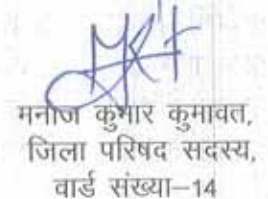 मनोज कुमार कुमावत,
जिला परिषद सदस्य,
वार्ड संख्या–14